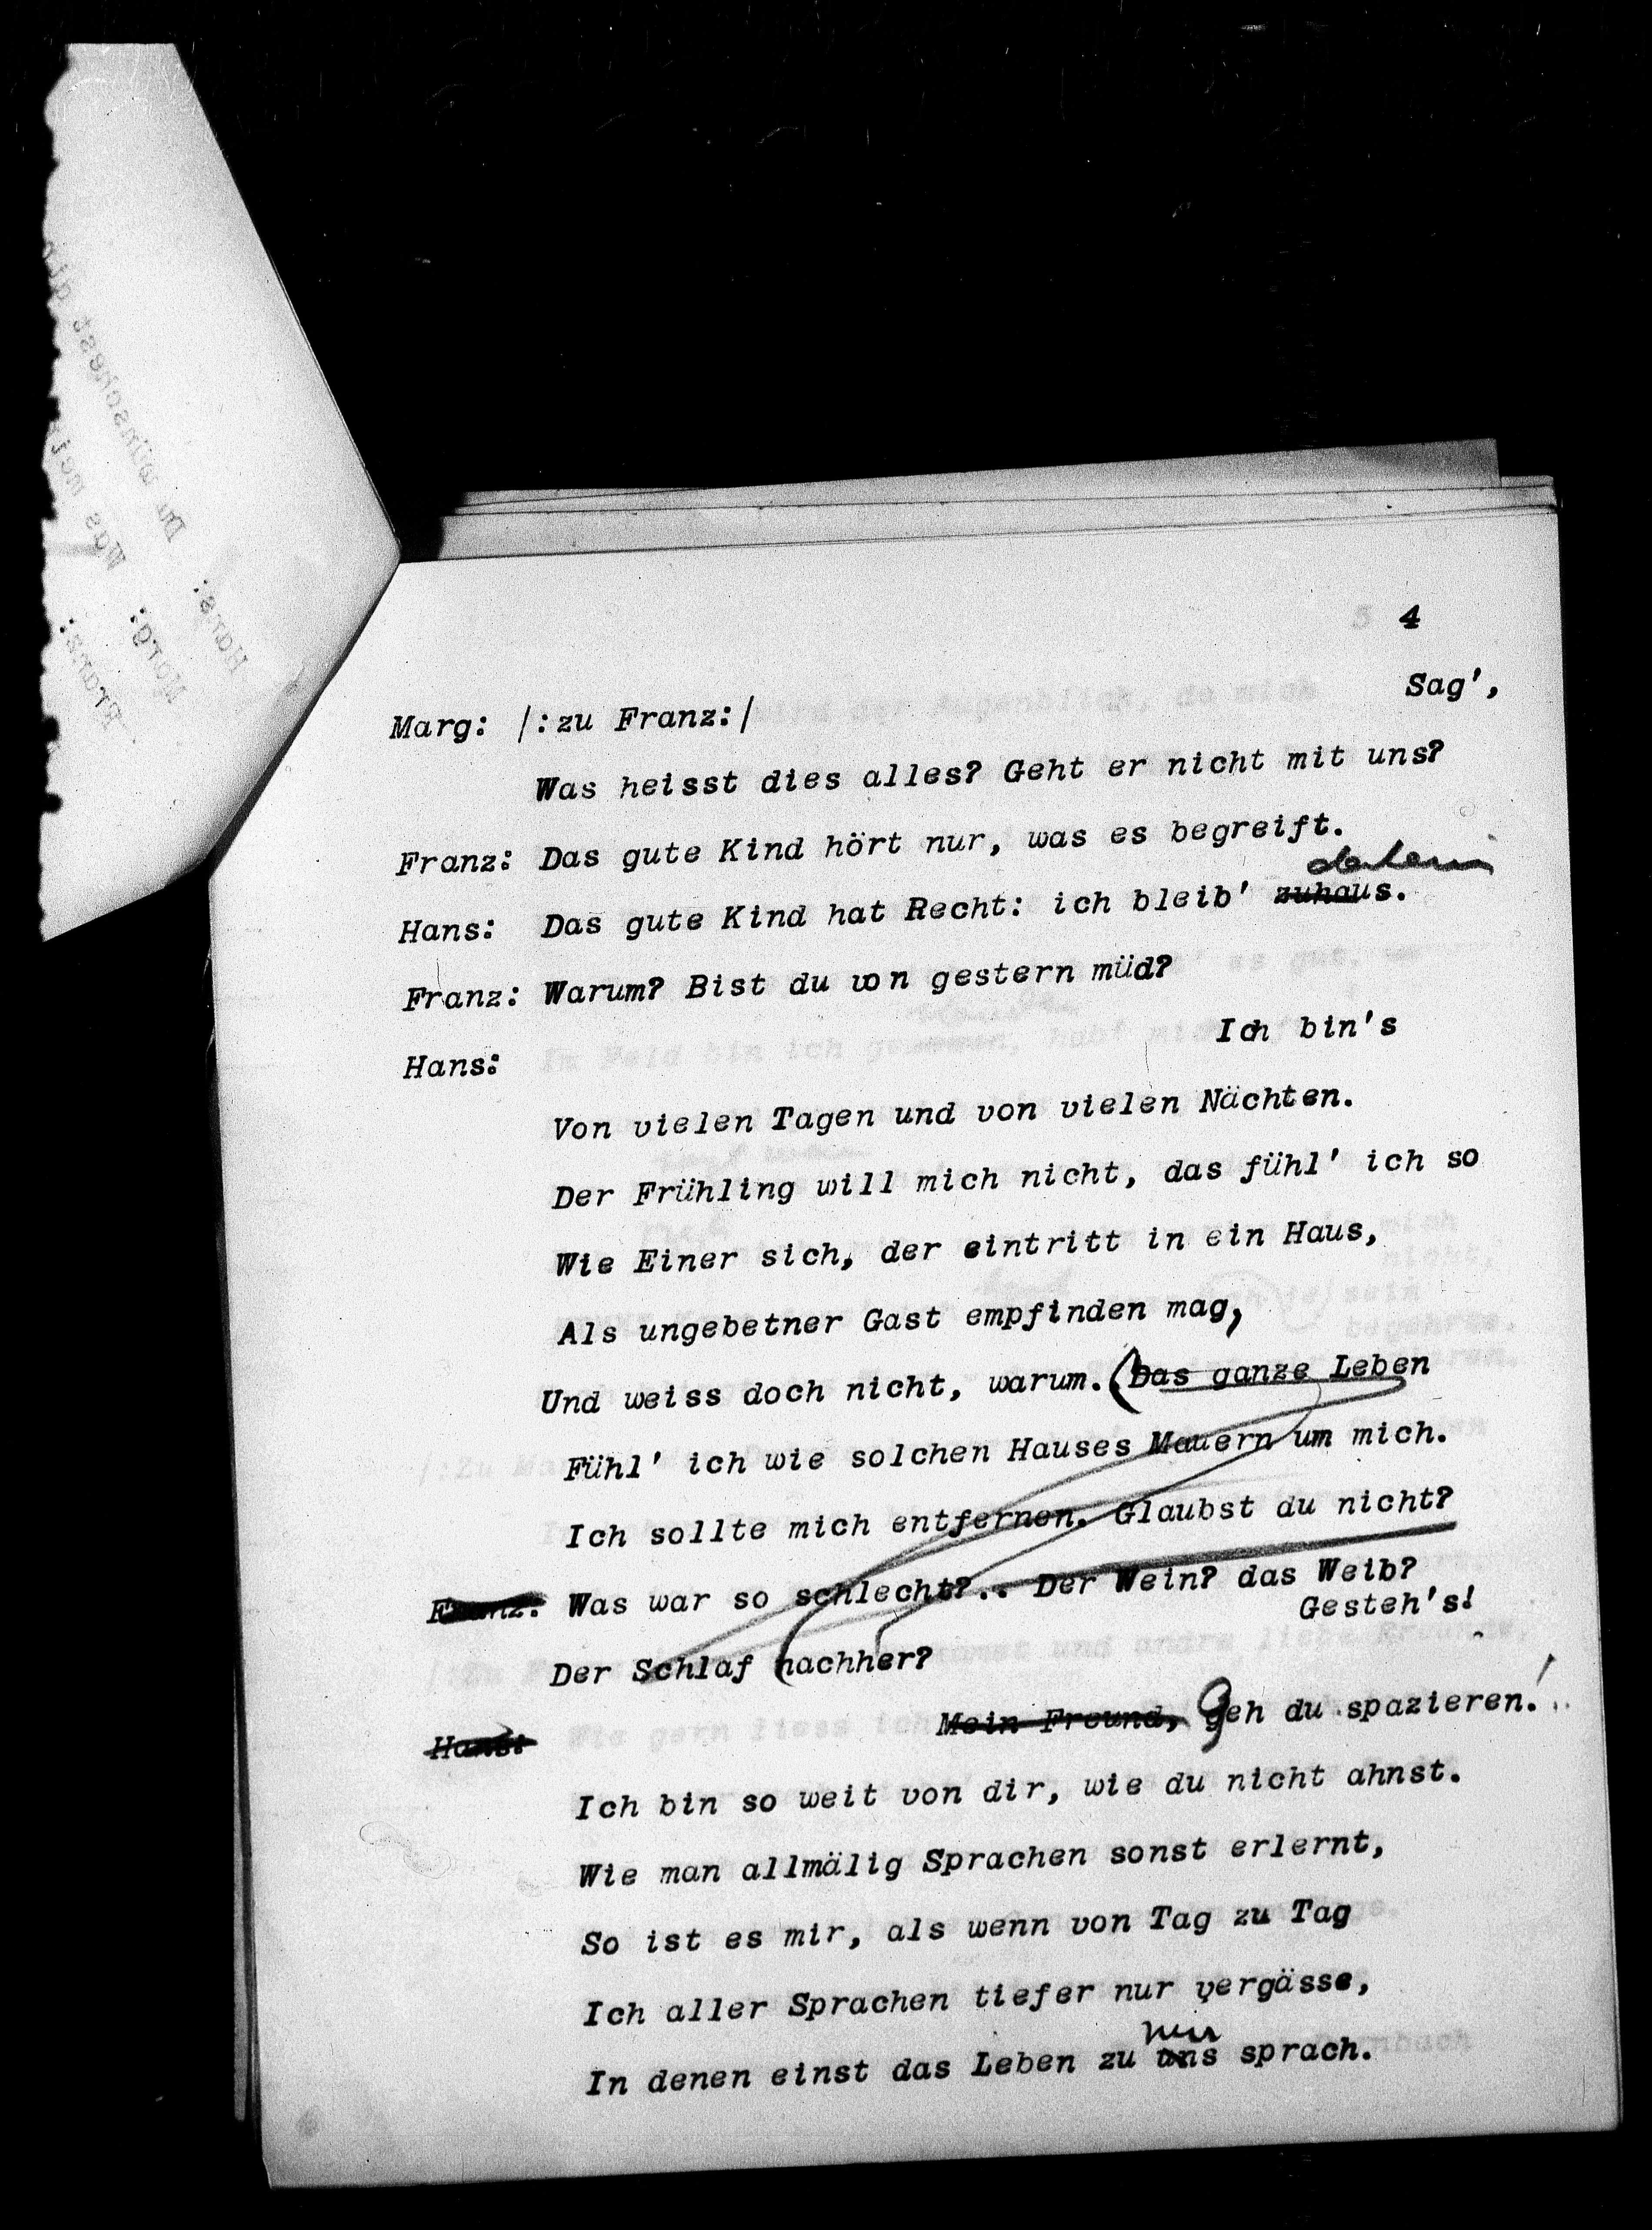 4
Sag',
Marg: /:zu Franz:/
Was heisst dies alles? Geht er nicht mit uns?
Franz: Das gute Kind hört nur, was es begreift.
daheim
Hans: Das gute Kind hat Recht: ich bleib' zuhaus.
Franz: Warum? Bist du von gestern müd?
Ich bin's
Hans:
Von vielen Tagen und von vielen Nächten.
Der Frühling will mich nicht, das fühl' ich so
Wie Einer sich, der eintritt in ein Haus,
Als ungebetner Gast empfinden mag,
Und weiss doch nicht, warum. (Das ganze Leben
Fühl' ich wie solchen Hauses Mauern um mich.
Ich sollte mich entfernen. Glaubst du nicht?
Franz: Was war so schlecht?.. Der Wein? das Weib?
Gesteh's!
Der Schlaf nachher?
Hans: Mein Freund, Geh du spazieren!
Ich bin so weit von dir, wie du nicht ahnst.
Wie man allmälig Sprachen sonst erlernt,
So ist es mir, als wenn von Tag zu Tag
Ich aller Sprachen tiefer nur vergässe,
In denen einst das Leben zu uns sprach.
Hans: Du wünschest
Marg: Was
Franz: